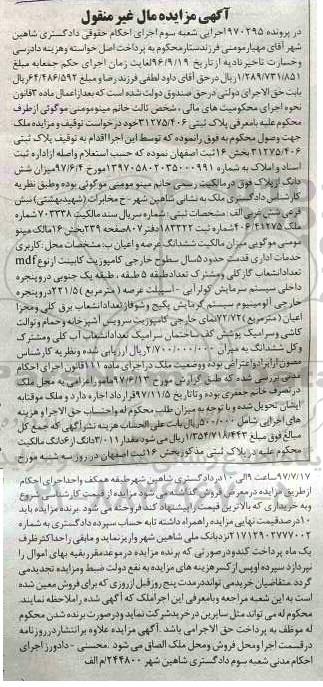 آگهی مزایده مال غیر منقول
در پرونده ۹۷۰۲۹۵اجرایی شعبه سوم اجرای احکام حقوقی دادگستری شاهین
شهر آقای مهیار مومنی فرزند ستار محکوم به پرداخت اصل خواسته وهزینه دادرسی
وخسارت تاخیر تادیه از تاریخ ۹۶/۹/۱۹لغایت زمان اجرای حکم جمعا به مبلغ
۱/۲۸۹/۷۳۱/۸۵۱ ریال در حق آقای داود لطفی فرزند رضا و مبلغ ۶۴/۴۸۶/۵۹۲ریال
بابت حق الاجرای دولتی درحق صندوق دولت شده است که بعد از اعمال ماده ۳قانون
نحوه اجرای محکومیت های مالی ، شخص ثالث خانم مینو مومنی موگوئی از طرف
محکوم علیه با معرفی پلاک ثبتی ۳۱۲۷۵/۴۰۶خود درخواست توقیف و مزایده ملک
جهت وصول محکوم به فوق رانموده که توسط این اجرا اقدام به توقیف پلاک ثبتی
۳۱۲۷۵/۴۰۶ بخش ۱۶ ثبت اصفهان نموده که حسب استعلام واصله از اداره ثبت
اسناد و املاک به شماره ۱۳۹۷۰۵۸۰۲۰۳۵۰۰۰۹۹۱ مورخ ۹۷/۶/۴میزان شش
دانگ از پلاک فوق در مالکیت رسمی خانم مینو مومنی موگوئی بوده وطبق نظریه
کارشناس دادگستری ملک به نشانی شاهین شهر - خ مخابرات (شهیدبهشتی)نبش
فرعی شش غربی الف : مشخصات ثبتی : شماره سریال سند مالکیت ۷۰۳۳۳۸ شماره
ملک ۴۰۶/۳۱۲۷۵ شماره ثبت ۱۸۳۲۲۲ دفتر ۸۰۷صفحه ۲۳۹بخش ۱۶مالک مینو
مومنی موگویی میزان مالکیت ششدانگ عرصه و اعیان ب: مشخصات محل : کاربری
خدمات اداری قدمت حدود ۵سال سطوح خارجی کامپوزیت کابینت از نوع mdf
تعدادانشعاب گازکلی ومشترک تعدادطبقه ۵ طبقه ، طبقه یک جنوبی دروپنجره
داخلی سیستم سرمایش کولرآبی - آسپلیت عرصه ( مترمربع )۲۲۱/۵ دروپنجره
خارجی آلومینیوم سیستم گرمایش پکیج وشوفاژ تعدادانشعاب برق کلی ومجزا
اعیان (مترمربع)۷۲/۷۲نمای خارجی کامپوزیت سرویس آشپزخانه وحمام و توالت
کاشی وسرامیک پوشش کف ساختمان سرامیک تعدادانشعاب آب کلی ومشترک
وکل ششدانگ به میزان ۲/۷۰۰/۰۰۰/۰۰۰ریال ارزیابی شده ونظریه کارشناس
مصون از ایراد واعتراض بوده ووضعیت ملک در اجرای ماده ۱۱۱قانون اجرای احکام
مدنی بررسی شده که طبق گزارش مورخ ۹۷/۶/۱۳ماموراعزامی به محل ملک
در تصرف خانم جعفری بوده و تاریخ ۹۷/۱۱/۵قرارداد اجاره دارد و ملک موقتابه
ایشان تحویل شده و با توجه به میزان طلب محکوم له واحتساب حق الاجرا و هزینه
های اجرایی شامل ۵۰۰/۰۰۰ریال بابت علی الحساب هزینه نشرآگهی که جمع کل
مبالغ فوق مبلغ ۱/۳۵۴/۷۱۸/۴۴۳ ریال می شود مقدار ۳/۰۱۱دانگ از ۶دانگ مالکیت
محکوم علیه در پلاک ثبتی مذکور بخش ۱۶ ثبت اصفهان در روز سه شنبه مورخ
۹۷/۷/۱۷ساعت ۹الی ۱۰دردادگستری شاهین شهرطبقه همکف واحداجرای احکام
ازطریق مزایده درمعرض فروش گذاشته می شود مزایده از قیمت کارشناسی شروع
وبه خریداری که بالاترین قیمت را پیشنهاد کند فروخته می شود .برنده مزایده باید
۱۰درصدقیمت نهایی مزایده راهمراه داشته تابه حساب سپرده دادگستری به شماره
۲۱۷۱۲۹۰۲۷۷۰۰۲نزدبانک ملی شاهین شهر واریزنماید و مابقی راحداکثرظرف
یک ماه پرداخت کندودرصورتی که برنده مزایده درموعدمقرربقیه بهای اموال را
نپردازد سپرده اوپس از کسرهزینه های مزایده به نفع دولت ضبط ومزایده تجدیدمی
گردد متقاضیان خریدمی توانندرمدت پنج روزقبل ازروزی که برای فروش معین شده
است به این شعبه مراجعه وبامعرفی این اجراملک که آگهی شده راملاحظه نمایند.
محکوم له می تواند مثل سایرین درخریدشرکت نماید ودرصورت برنده شدن محکوم
له موظف به پرداخت حق الاجرامی باشد .آگهی مزایده علاوه برانتشاردرروزنامه
درقسمت اجرا ومحل فروش ومحل ملک الصاق می شود .محسنی - دادورز اجرای
احکام مدنی شعبه سوم دادگستری شاهین شهر ۲۴۴۸۰۰/م الف